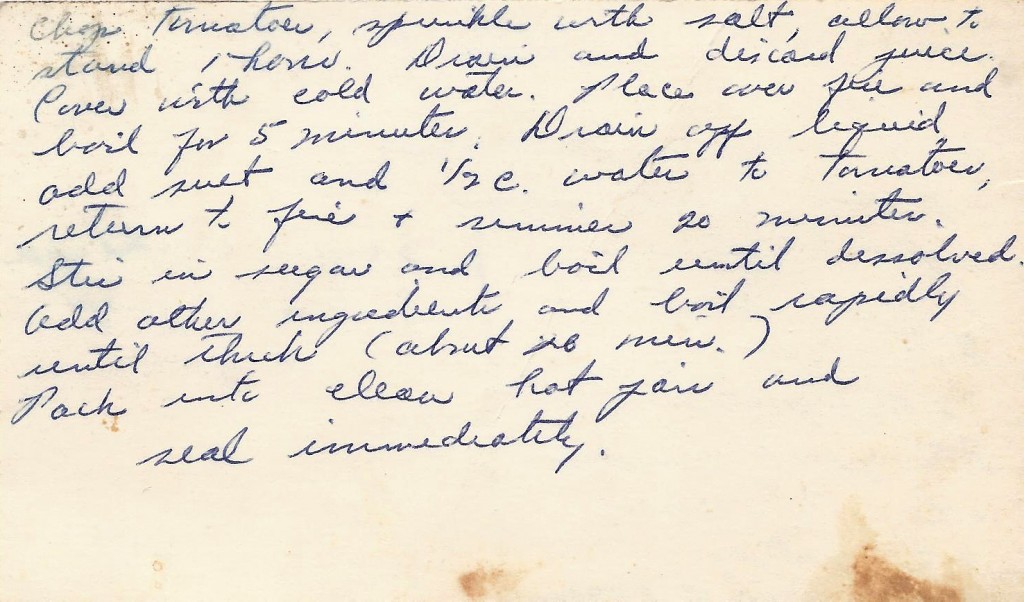 Chop tomatoes, sprinkle with salt, allow to
stand 1 hour. Drain and discard juice.
Cover with cold water. Place over fire and
boil for 5 minutes. Drain off liquid,
add suet and 1/2 c. water to tomatoes,
return to fire + simmer 20 minutes.
Stir in sugar and boil until dessolved.
Add other ingredients and boil rapidly
until thick (about 20 min.)
Pack into clean hot jars and
seal immediately.